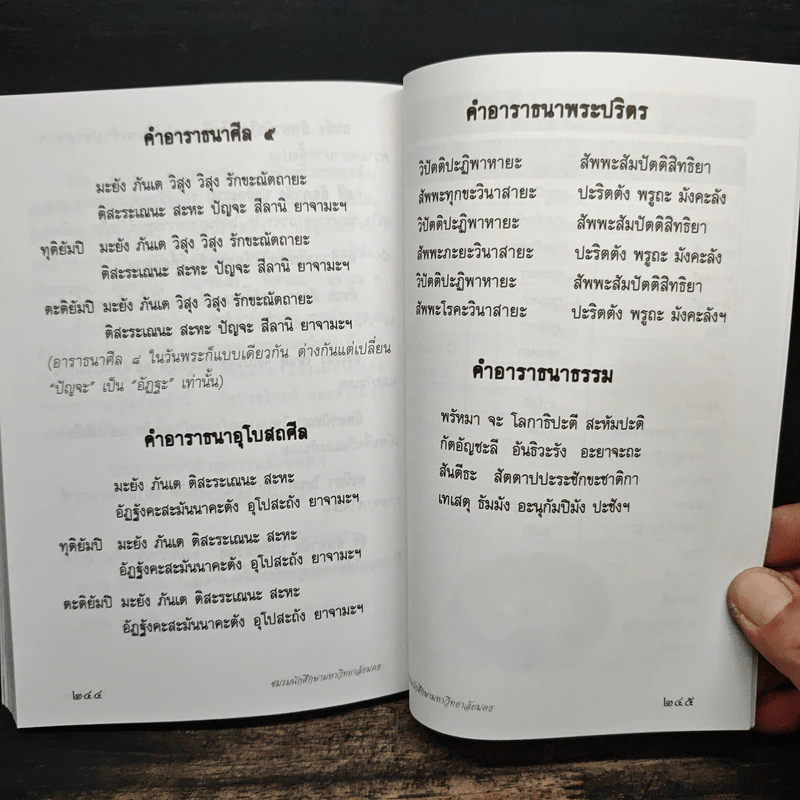 คำอาราธนาศีล ๕
มะยัง ภันเต วิสุง วิสุง รักขะณัตถายะ
ติสะระเณนะ สะหะ ปัญจะ สีลานิ ยาจามะฯ
ทุติยัมปิ มะยัง ภันเต วิสุง วิสุง รักขะณัตถายะ
ติสะระเณนะ สะหะ ปัญจะ สีลานิ ยาจามะฯ
ตะติยัมปิ มะยัง ภันเต วิสุง วิสุง รักขะณัตถายะ
ติสะระเณนะ สะหะ ปัญจะ สีลานิ ยาจามะฯ
(อาราธนาศีล ๘ ในวันพระก็แบบเดียวกัน ต่างกันแต่เปลี่ยน
“ปัญจะ” เป็น “อัฏฐะ” เท่านั้น)
คำอาราธนาอุโบสถศีล
มะยัง ภันเต ติสะระเณนะ สะหะ
อัฏฐังคะสะมันนาคะตัง อุโปสะถัง ยาจามะฯ
ทุติยัมปิ มะยัง ภันเต ติสะระเณนะ สะหะ
อัฏฐังคะสะมันนาคะตัง อุโปสะถัง ยาจามะฯ
ตะติยัมปิ มะยัง ภันเต ติสะระเณนะ สะหะ
อัฏฐังคะสะมันนาคะตัง อุโปสะถัง ยาจามะฯ
ชมรมนักศึกษามหาวิทยาลัยมคธ
๒๔๔
คำอาราธนาพระปริตร
วิปัตติปะฏิพาหายะ สัพพะสัมปัตติสิทธิยา
สัพพะทุกขะวินาสายะ ปะริตตัง พรูถะ มังคะลัง
วิปัตติปะฏิพาหายะ สัพพะสัมปัตติสิทธิยา
สัพพะภะยะวินาสายะ ปะริตตัง พรูถะ มังคะลัง
วิปัตติปะฏิพาหายะ สัพพะสัมปัตติสิทธิยา
สัพพะโรคะวินาสายะ ปะริตตัง พรูถะ มังคะลังฯ
คำอาราธนาธรรม
พรัหมา จะ โลกาธิปะตี สะหัมปะติ
กัตอัญชะลี อันธิวะรัง อะยาจะถะ
สันตีธะ สัตตาปปะระชักขะชาติกา
เทเสตุ ธัมมัง อะนุกัมปิมัง ปะชังฯ
นักศึกษามหาวิทยาลัยมคธ
๒๔๕